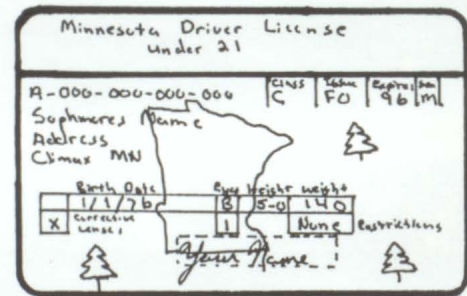 Minnesota Driver License
Under 21
A-000-000-000-000
Class Issue Expires Sex
C FO 96 M
Sophmores Name
Address
Climax MN
Birth Date Eye Height Weight
1/1/76 B 5-0 140
X corrective lenses 1 None Restrictions
Your Name